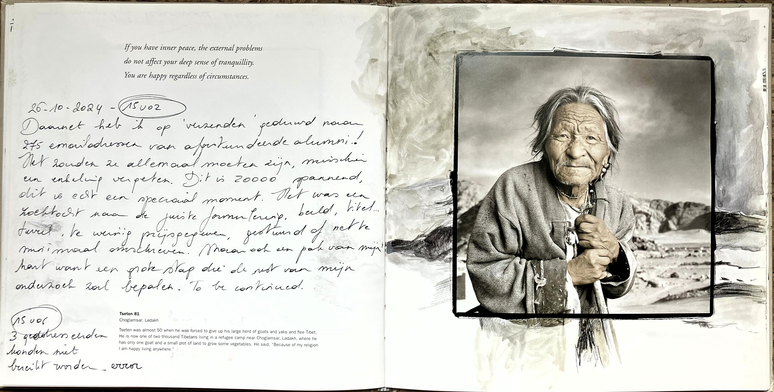 If you have inner peace, the external problems
do not affect your deep sense of tranquillity.
You are happy regardless of circumstances.
26-10-2024 - 15u02
Daarnet heb ik op 'verzenden' geduwd naar
275 emailadressen van afgestudeerde alumni!
Het zouden ze allemaal moeten zijn, misschien
een enkeling vergeten. Dit is zoooo spannend,
dit is echt een speciaal moment. Het was een
zoektocht naar de juiste formulering, beeld, titel...
te weinig prijsgegeven, gestuurd of net te
omschreven. Maar ook een pak van mijn
hart want een grote stap die de rest van mijn
onderzoek zal bepalen. To be continued.
Tseten 81
Choglamsar, Ladakh
Tseten was almost 50 when he was forced to give up his large herd of goats and yaks and flee Tibet.
He is now one of two thousand Tibetans living in a refugee camp near Choglamsar, Ladakh, where he
has only one goat and a small plot of land to grow some vegetables. He said: "Because of my religion
I am happy living anywhere."
3 geadresseerden
konden niet
bereikt worden - error